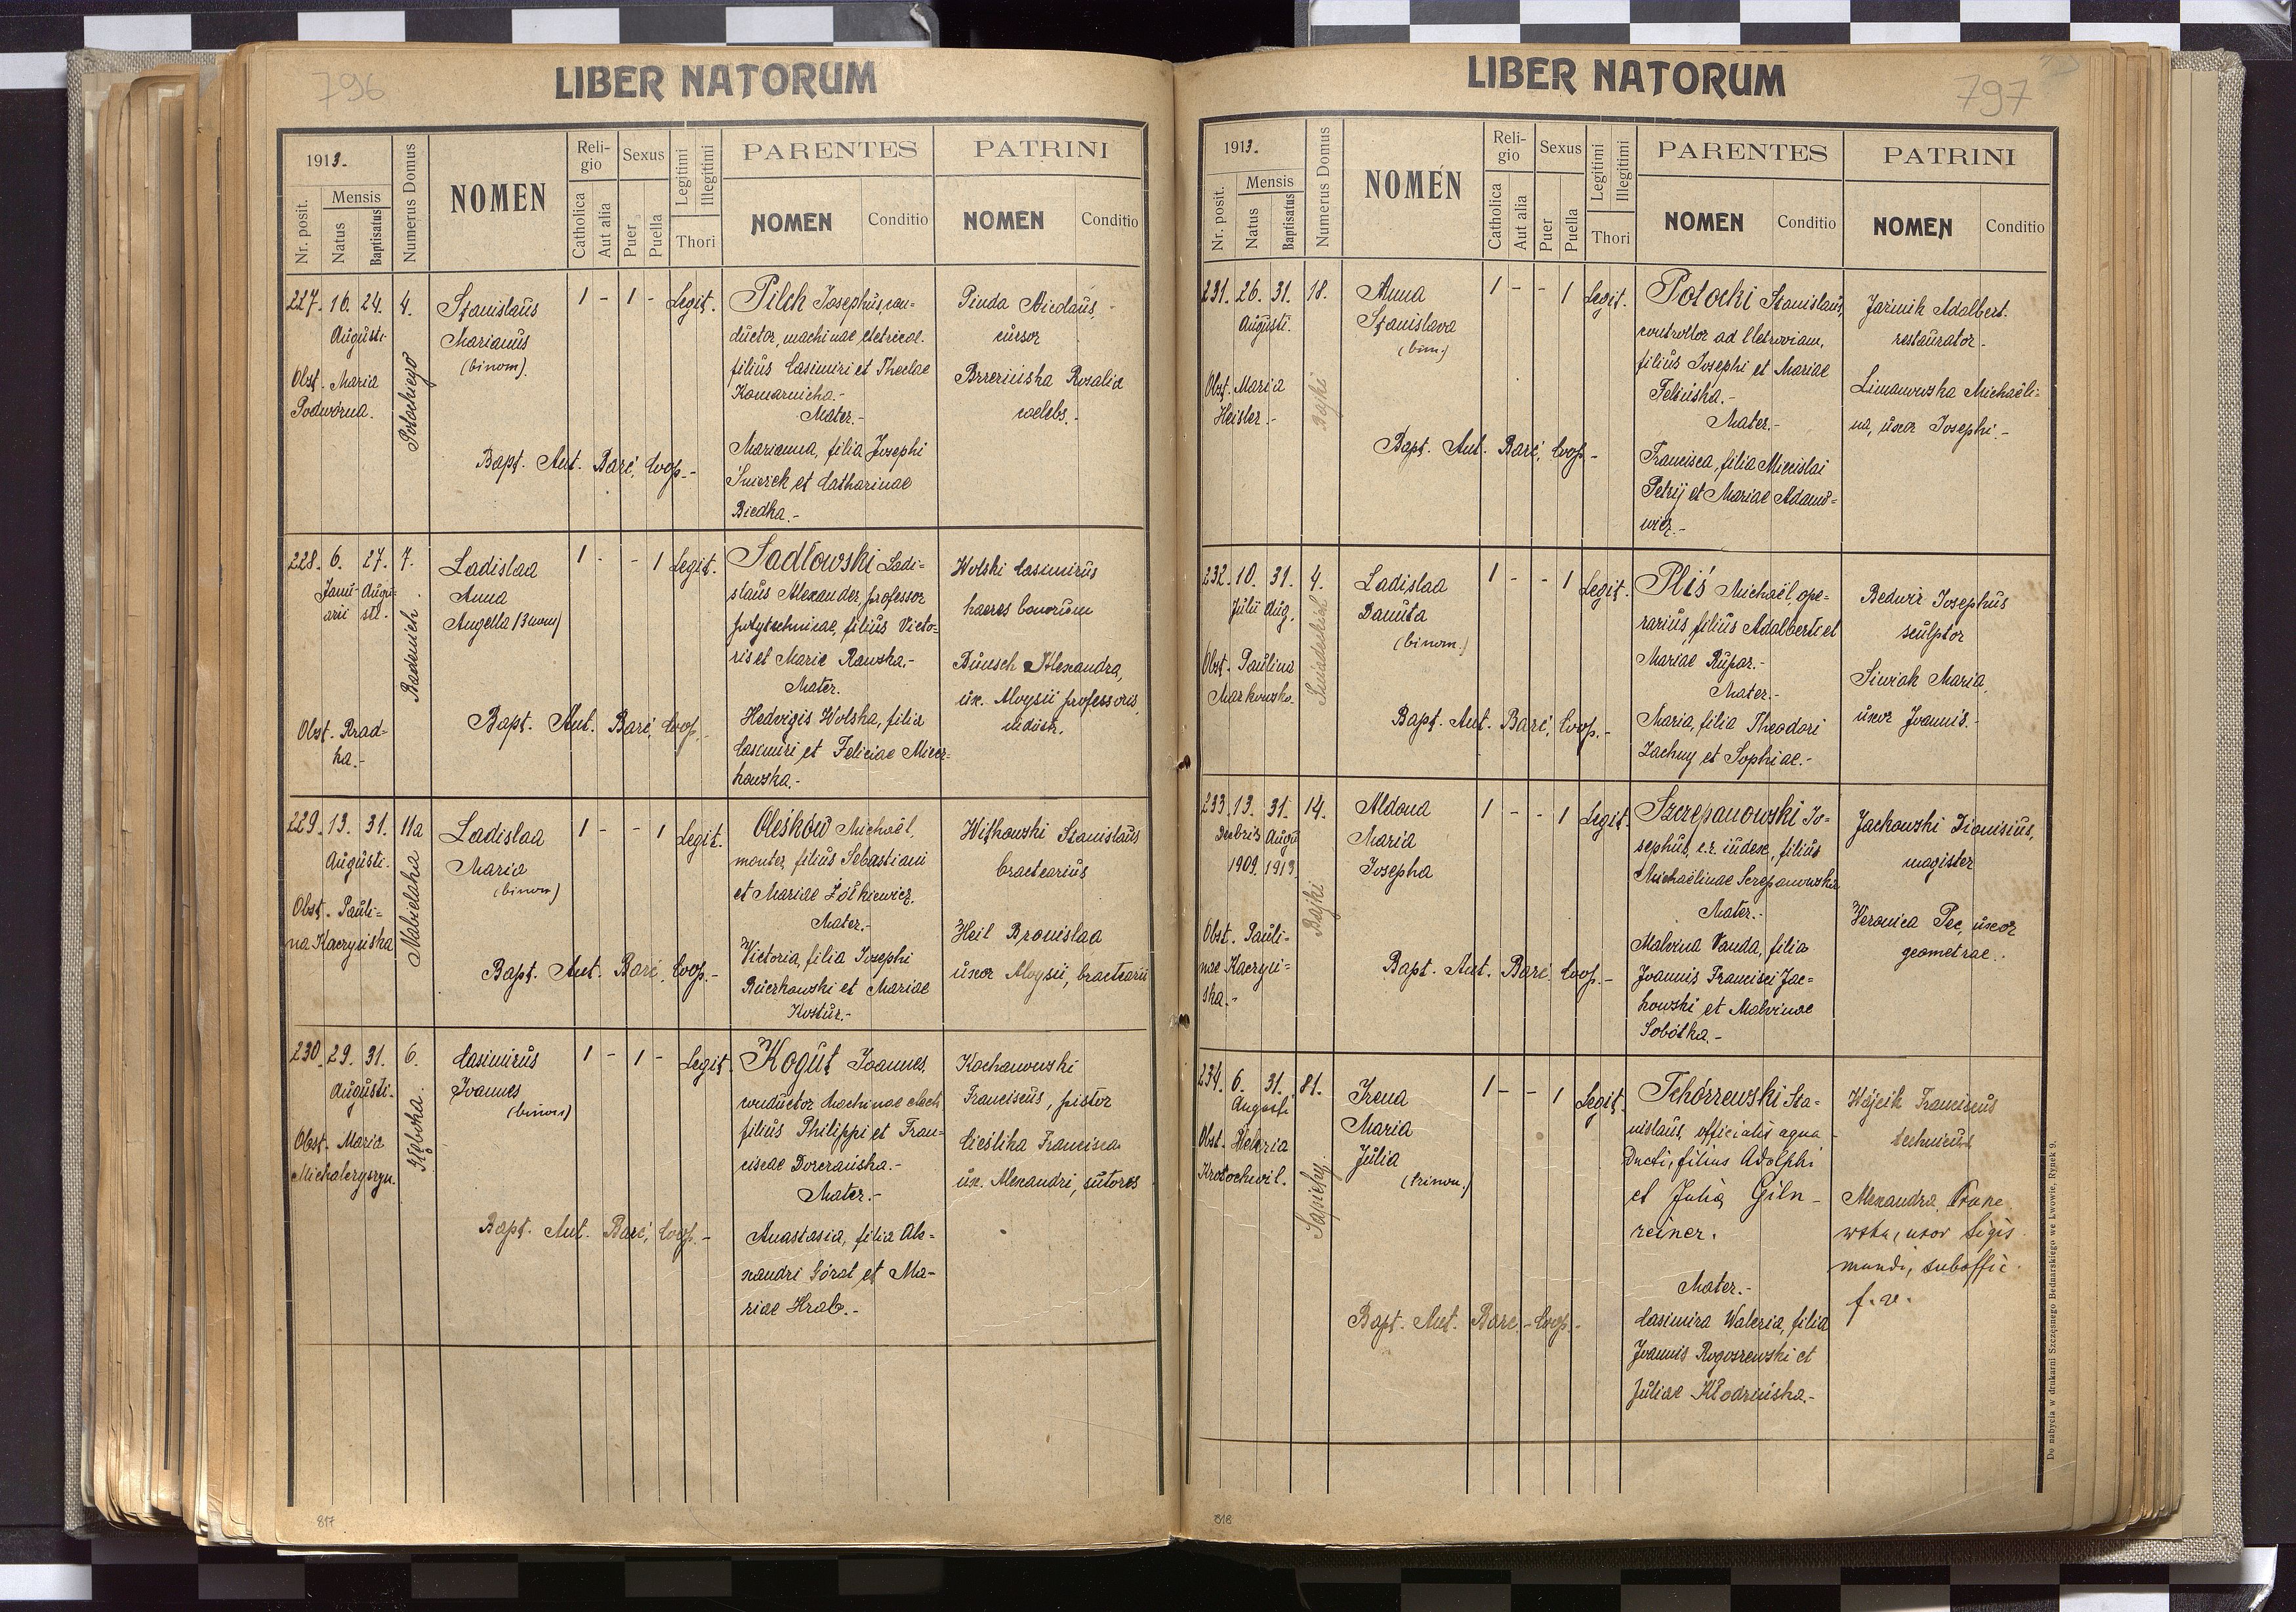 796
LIBER NATORUM
1913.
Nr. posit.
Mensis
Natus
Baptisatus
Numerus Domus
NOMEN
Religio
Catholica
Aut alia
Sexus
Puer
Puella
Legitimi
Illegitimi
Thori
PARENTES
NOMEN
Conditio
PATRINI
NOMEN
Conditio
227. 16. 24. 4.
Augusti
Potockiego
Obst. Maria
Podwórna.
Stanislaus
Marianus
(binom).
1 - 1 - Legit.
Bapt. Ant. Barć, Coop.-
Pilch Josephus, con=
ductor, machinae eletricae.
filius Casimiri et Theclae
Komarnicka.-
Mater.-
Marianna, filia Josephi
Śnieżek et Catharinae
Biedka.-
Pinda Nicolaus,
cursor
Rosalia
caelebs.-
228. 6. 27. 7.
Janu- Augu-
arii sti.
Badenich
Obst. Brad=
ka.-
Ladislaa
Anna
Angella (3 nom)
1 - - 1 Legit.
Bapt. Ant. Barć, Coop.-
Sadłowski Ladi=
slaus Alexander, professor
polytechnicae, filius Victo=
ris et Marie Rawska.-
Mater.
Hedvigis Wolska, filia
Casimiri et Feliciae Mierz=
kowska.-
Wolski Casimirus
haeres bonorum
Bunsch Alexandra,
ux. Aloysii professoris
229. 13. 31. 11a
Augusti.
Nabielaka
Obst. Pauli=
na Kaczyńska
Ladislaa
Maria
(binom)
1 - - 1 Legit.
Bapt. Ant. Barć, Coop.-
Oleśków Michaël,
monter, filius Sebastiani
et Mariae Żółkiewicz.
Mater.-
Victoria, filia Josephi
Ruczkowski et Mariae
Kostur.-
Witkowski Stanislaus
bractearius
Heil Bronislaa
uxor Aloysii, bractearii
230. 29. 31. 6.
Augusti.
Głęboka.
Obst. Maria
Michalczyszyn.
Casimirus
Joannes
(binom)
1 - 1 - Legit.
Bapt. Ant. Barć, Coop.-
Kogut Joannes,
conductor machinae elect.
filius Philippi et Fran=
ciscae Dorczańska.-
Mater.-
Anastasia, filia Ale=
xandri Górat et Ma-
riae Hrab.-
Kochanowski
Franciscus, pistor
Cieślika Francisca
ux. Alexandri, sutoris
817
797
LIBER NATORUM
1913.
Nr. posit.
Mensis
Natus
Baptisatus
Numerus Domus
NOMEN
Religio
Catholica
Aut alia
Sexus
Puer
Puella
Legitimi
Illegitimi
Thori
PARENTES
NOMEN
Conditio
PATRINI
NOMEN
Conditio
231. 26. 31. 18.
Augusti.
Bajki
Obst. Maria
Heisler.-
Anna
Stanislava
(bin.)
1 - - 1 Legit.
Bapt. Ant. Barć, Coop.-
Potocki Stanislaus,
controllor ad
filius Josephi et Mariae
Felińska.-
Mater.-
Francisca, filia Miecislai
Petrij et Mariae Adamo=
wicz.-
Jaźnik Adalbert.
restaurator.-
Limanowska Michaëli-
na, uxor Josephi.-
232. 10. 31. 4.
Julii Aug.
Śniadeckich
Obst. Paulina
Markowska.
Ladislaa
Danuta
(binom.)
1 - - 1 Legit.
Bapt. Ant. Barć, Coop.-
Pliś Michaël, ope=
rarius, filius Adalberti et
Mariae Rupar.-
Mater.-
Maria, filia Theodori
Zachuy et Sophiae.-
Bedwir Josephus
sculptor
Siwiak Maria,
uxor Joannis.-
233. 13. 31. 14.
Augu
1909. 1913.
Bajki
Obst. Pauli-
nae Kaczyń=
ska.-
Aldona
Maria
Josepha
1 - - 1 Legit.
Bapt. Ant. Barć, Coop.-
Szczepanowski Jo=
sephus, c.r. iudex, filius
Michaëlinae Sczepanowska
Mater.-
Malvina Vanda, filia
Joannis Francisci Jac=
kowski et Malvinae
Sobotka.-
Jackowski Dionisius,
magister
Veronica Pec, uxor
geometrae.
234. 6. 31. 81.
Augusti
Sapiehy.
Obst. Maria
Krotochwil.
Irena
Maria
Julia
(trinom.)
1 - - 1 Legit.
Bapt. Ant. Barć.- Coop.-
Tchórzewski Sta=
nislaus, officialis aquae-
ducti, filius Adolphi
et Julia Giln-
reiner.
Mater.-
Casimira Waleria, filia
Joannis Rogoszewski et
Juliae Kłodzińska.-
Wójcik Franciscus
technicus
Alexandra
wska, uxor Sigis
mundi, suboffic.
818
Do nabycia w drukarni Szczęsnego Bednarskiego we Lwowie, Rynek 9.